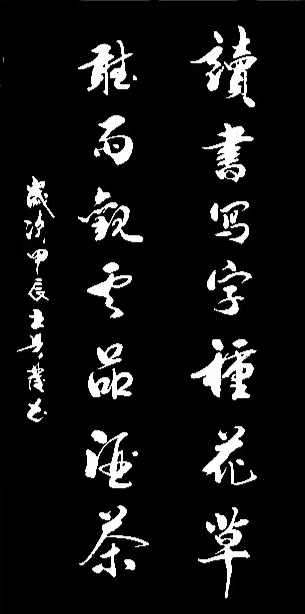 讀書写字種花草
聽雨觀云品酒茶
歲次甲辰